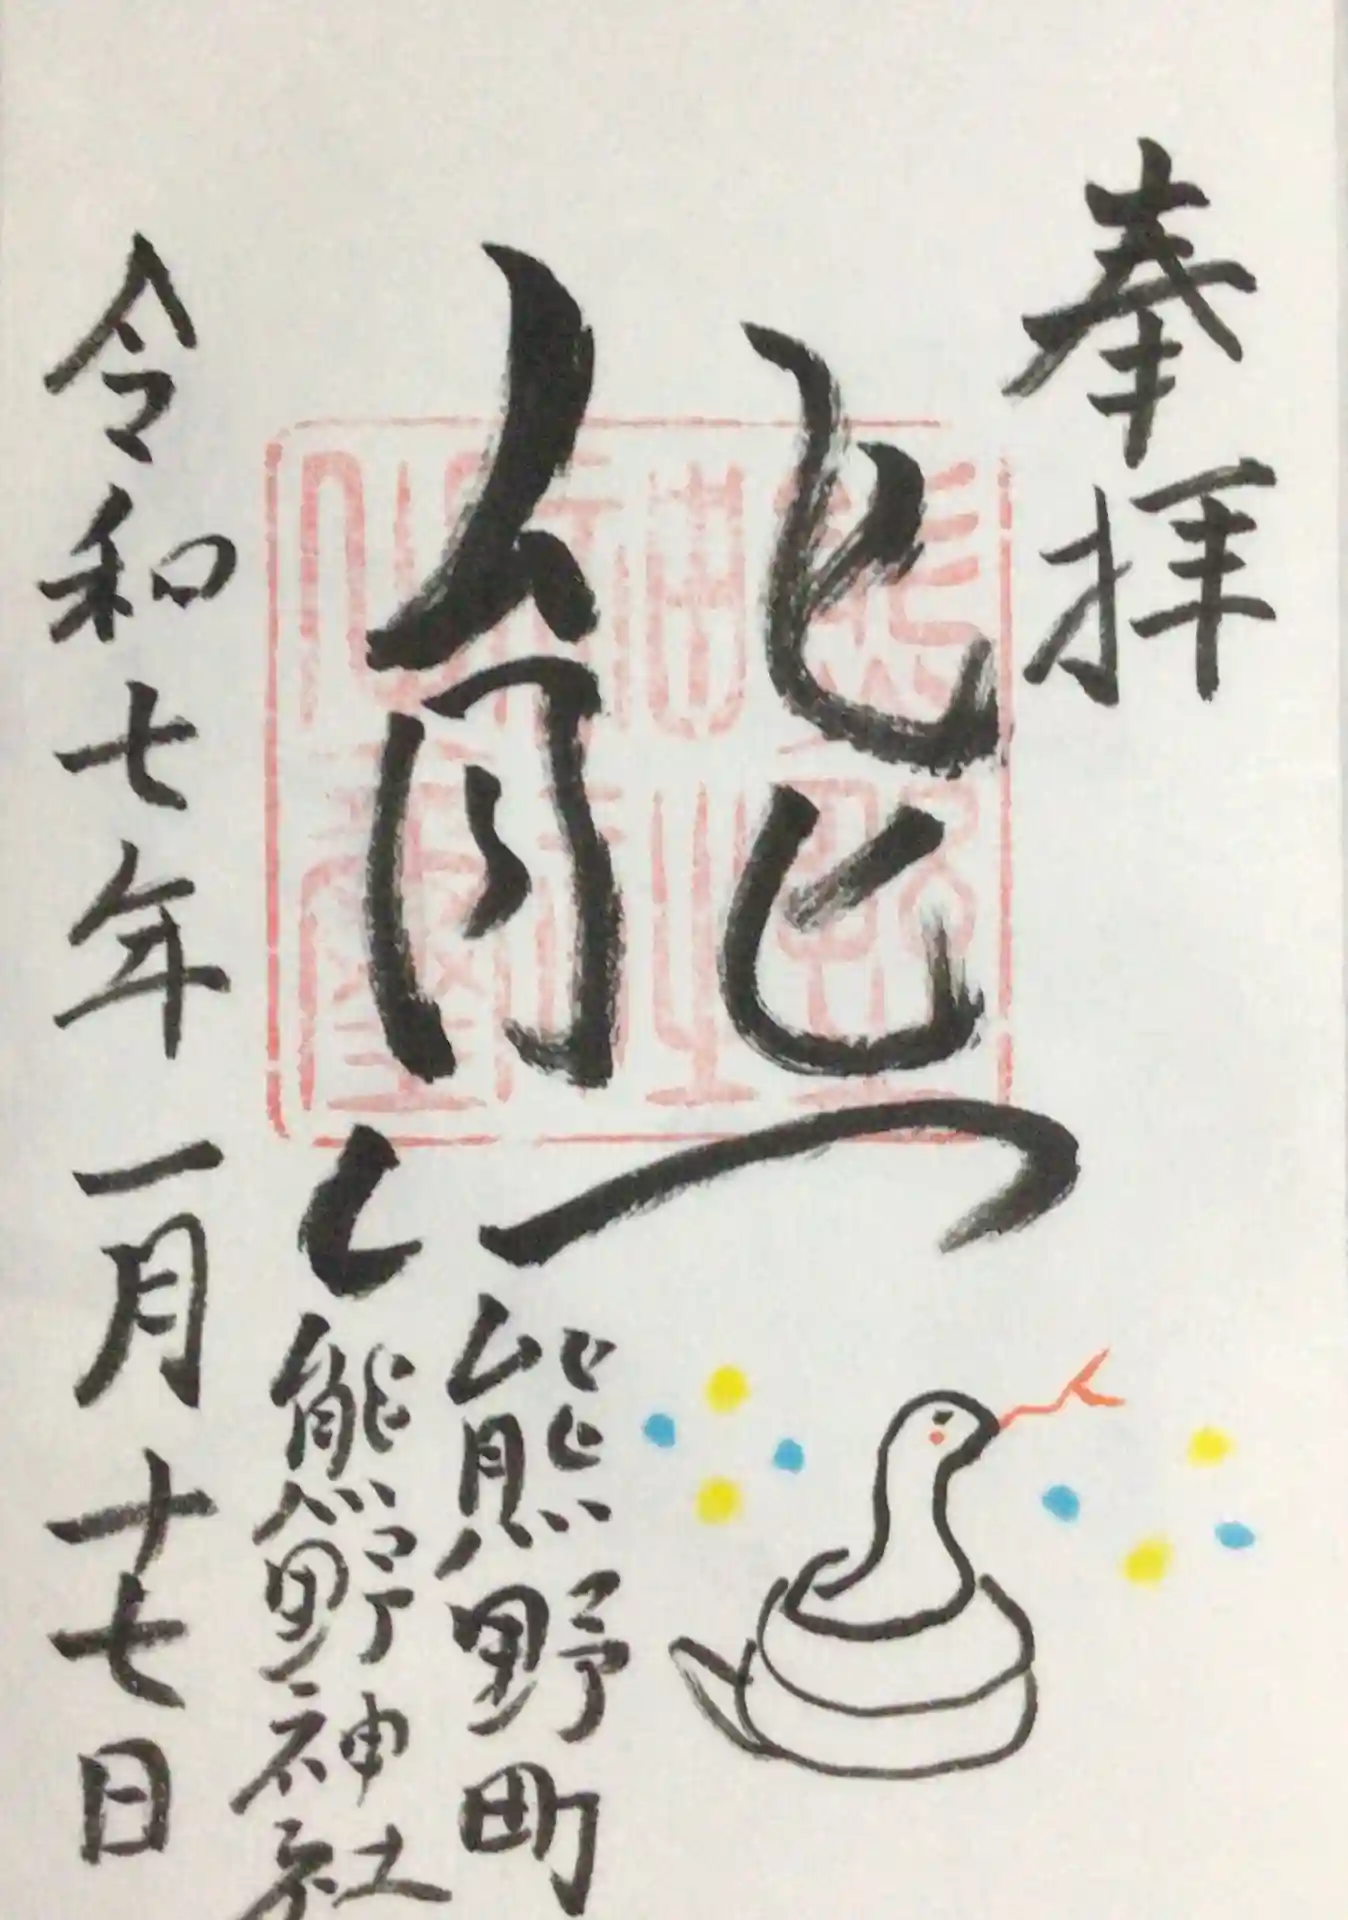 奉拝
熊
熊野町
熊野神社
令和七年一月十七日